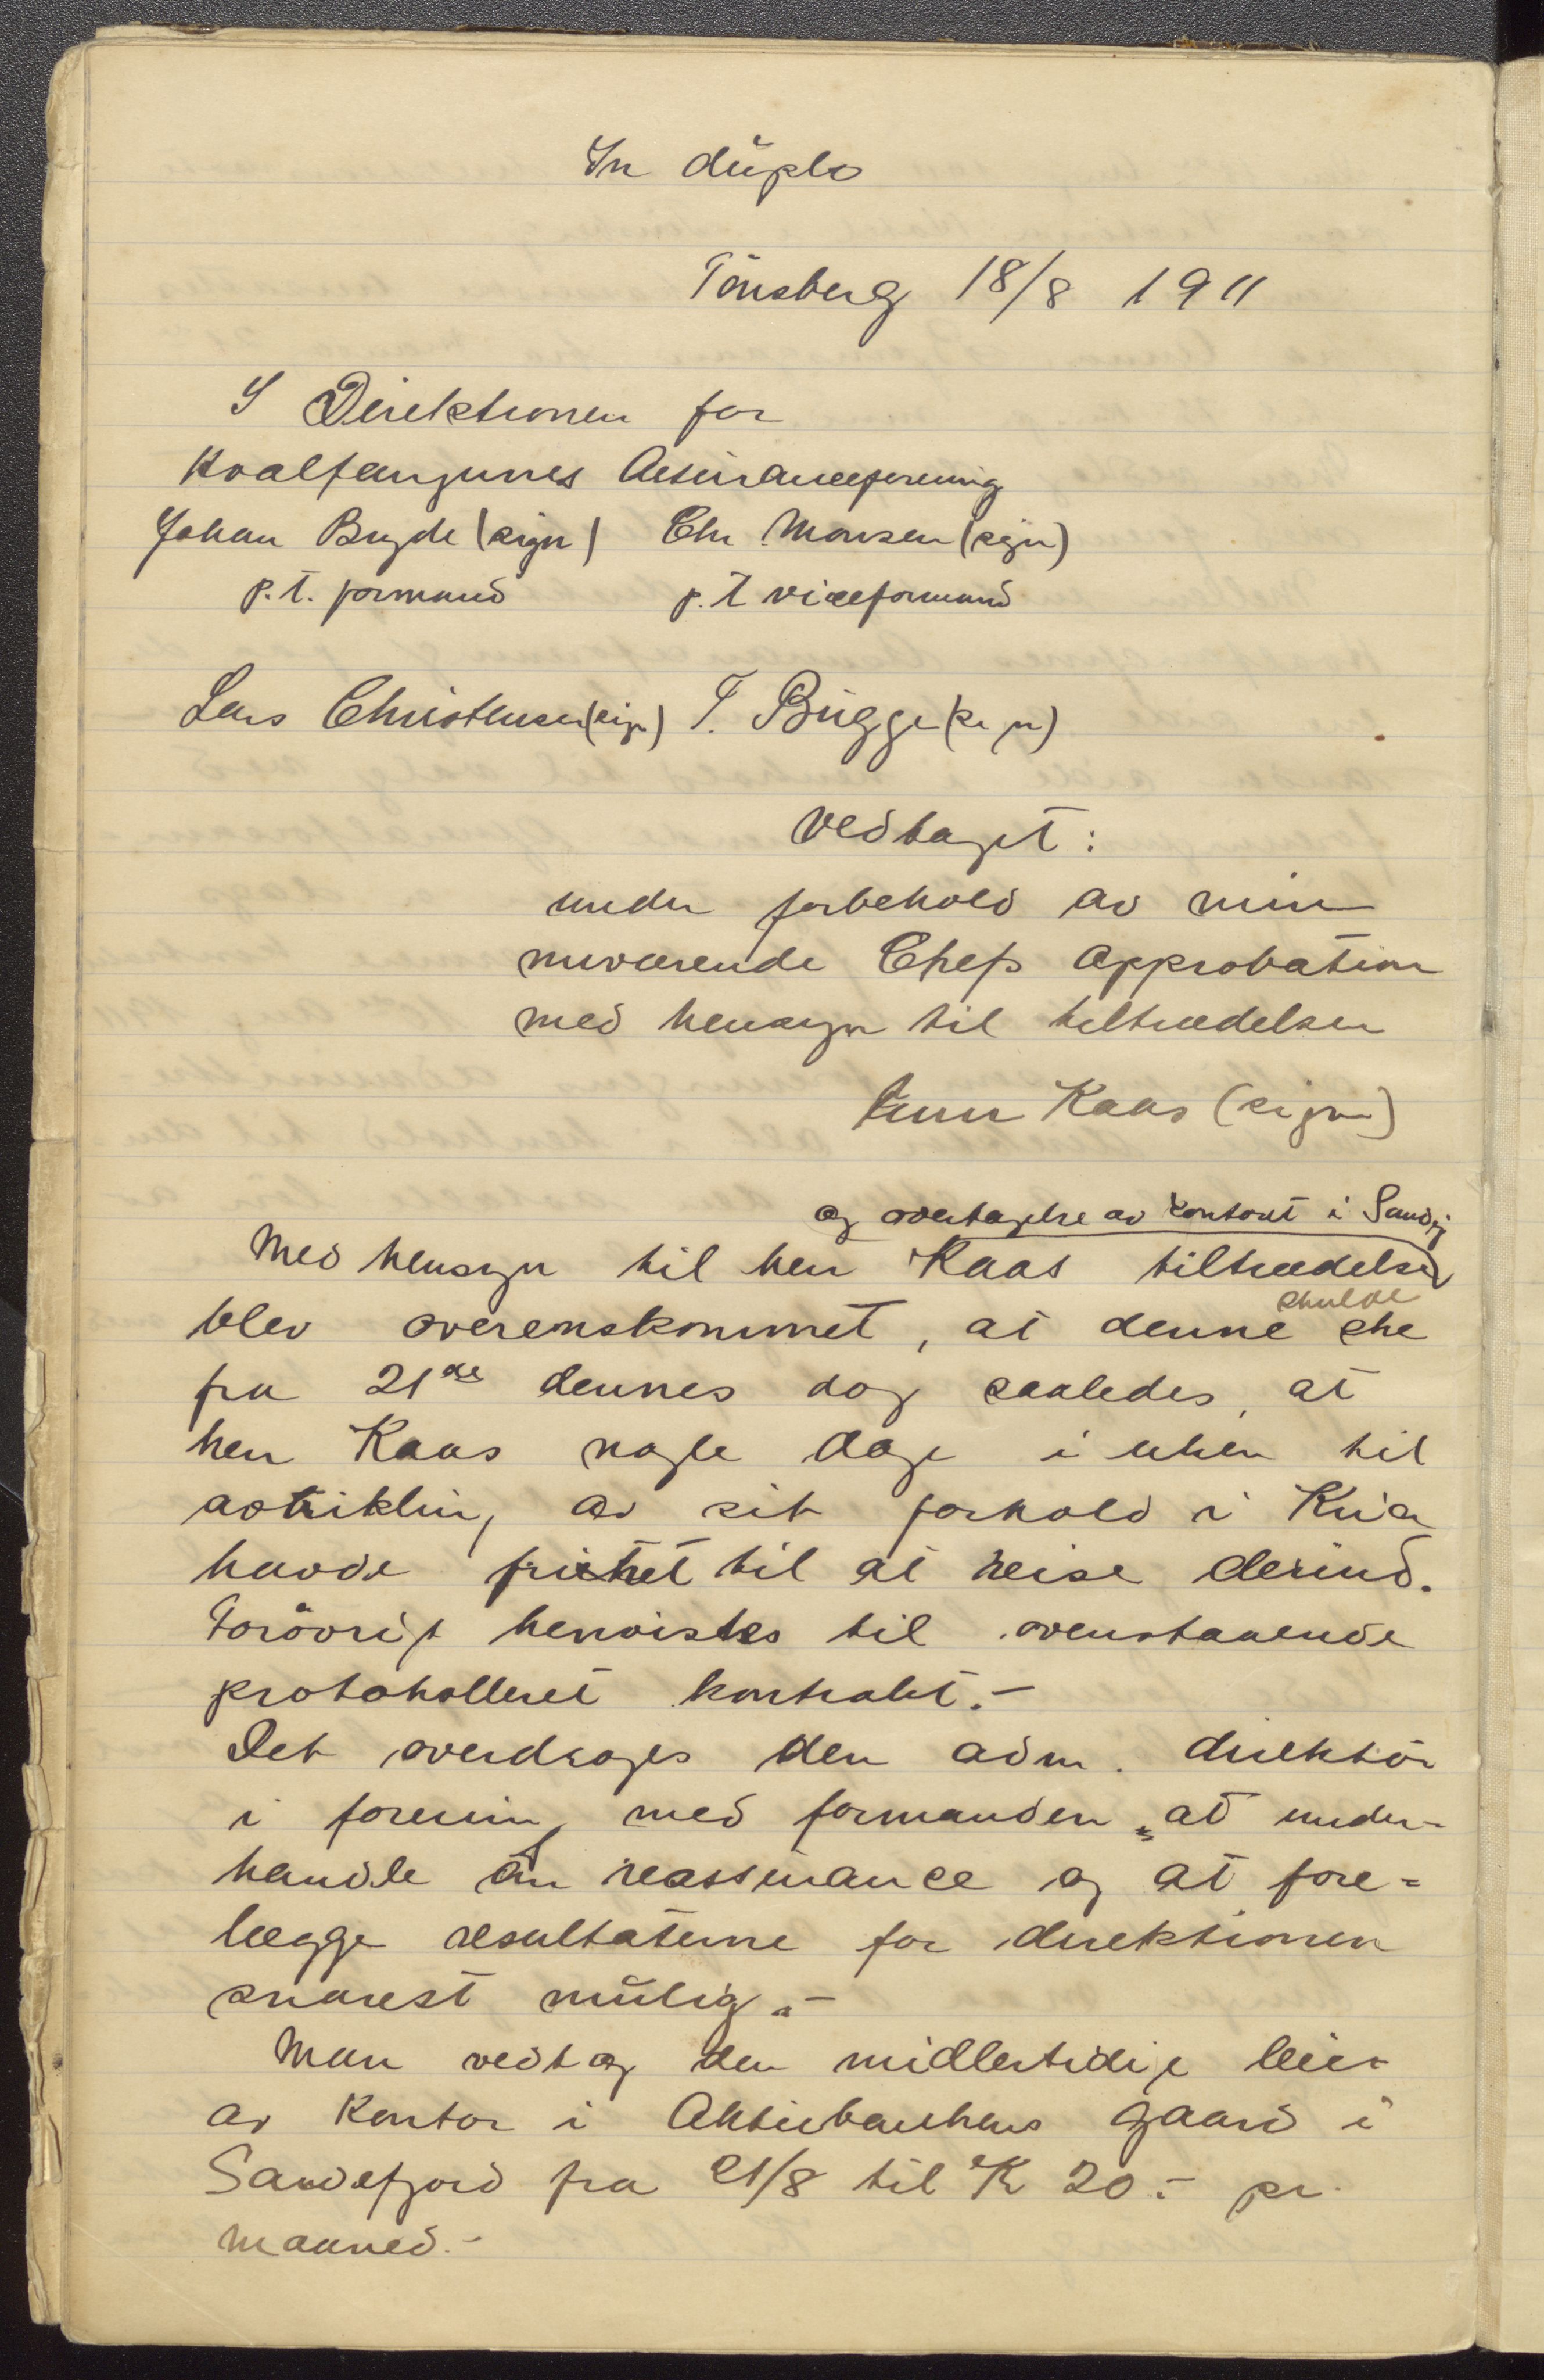 In duplo
Tönsberg 18/8 1911
I Direktionen for
Hvalfangernes Assuranceforening
Johan Bryde (sign) Chr. Monsen (sign)
p.t. formand p.t viceformand
Lars Christensen (sign) T. Bugge (sign)
Vedtaget:
under forbehold av min
nuværende Chefs Approbation
med hensyn til tiltrædelsen
Kaas (sign)
og overtagelse av kontoret i Sandefj
Med hensyn til herr Kaas tiltrædelse
blev overenskommet, at denne skulde ske
fra 21de dennes dog saaledes, at
herr Kaas nogle dage i uken til
avvikling av sit forhold i Kria
havde frihet til at reise derind.
Forövrigt henvistes til ovenstaaende
protokolleret kontrakt.-
Det overdroges den adm. direktör
i forening med formanden at under-
handle om reassurance og at fore-
lægge resultaterne for direktionen
snarest mulig.-
Man vedtog den midlertidige leie
av Kontor i Aktiebankens Gaard i
Sandefjord fra 21/8 til K 20.- pr.
maaned.-